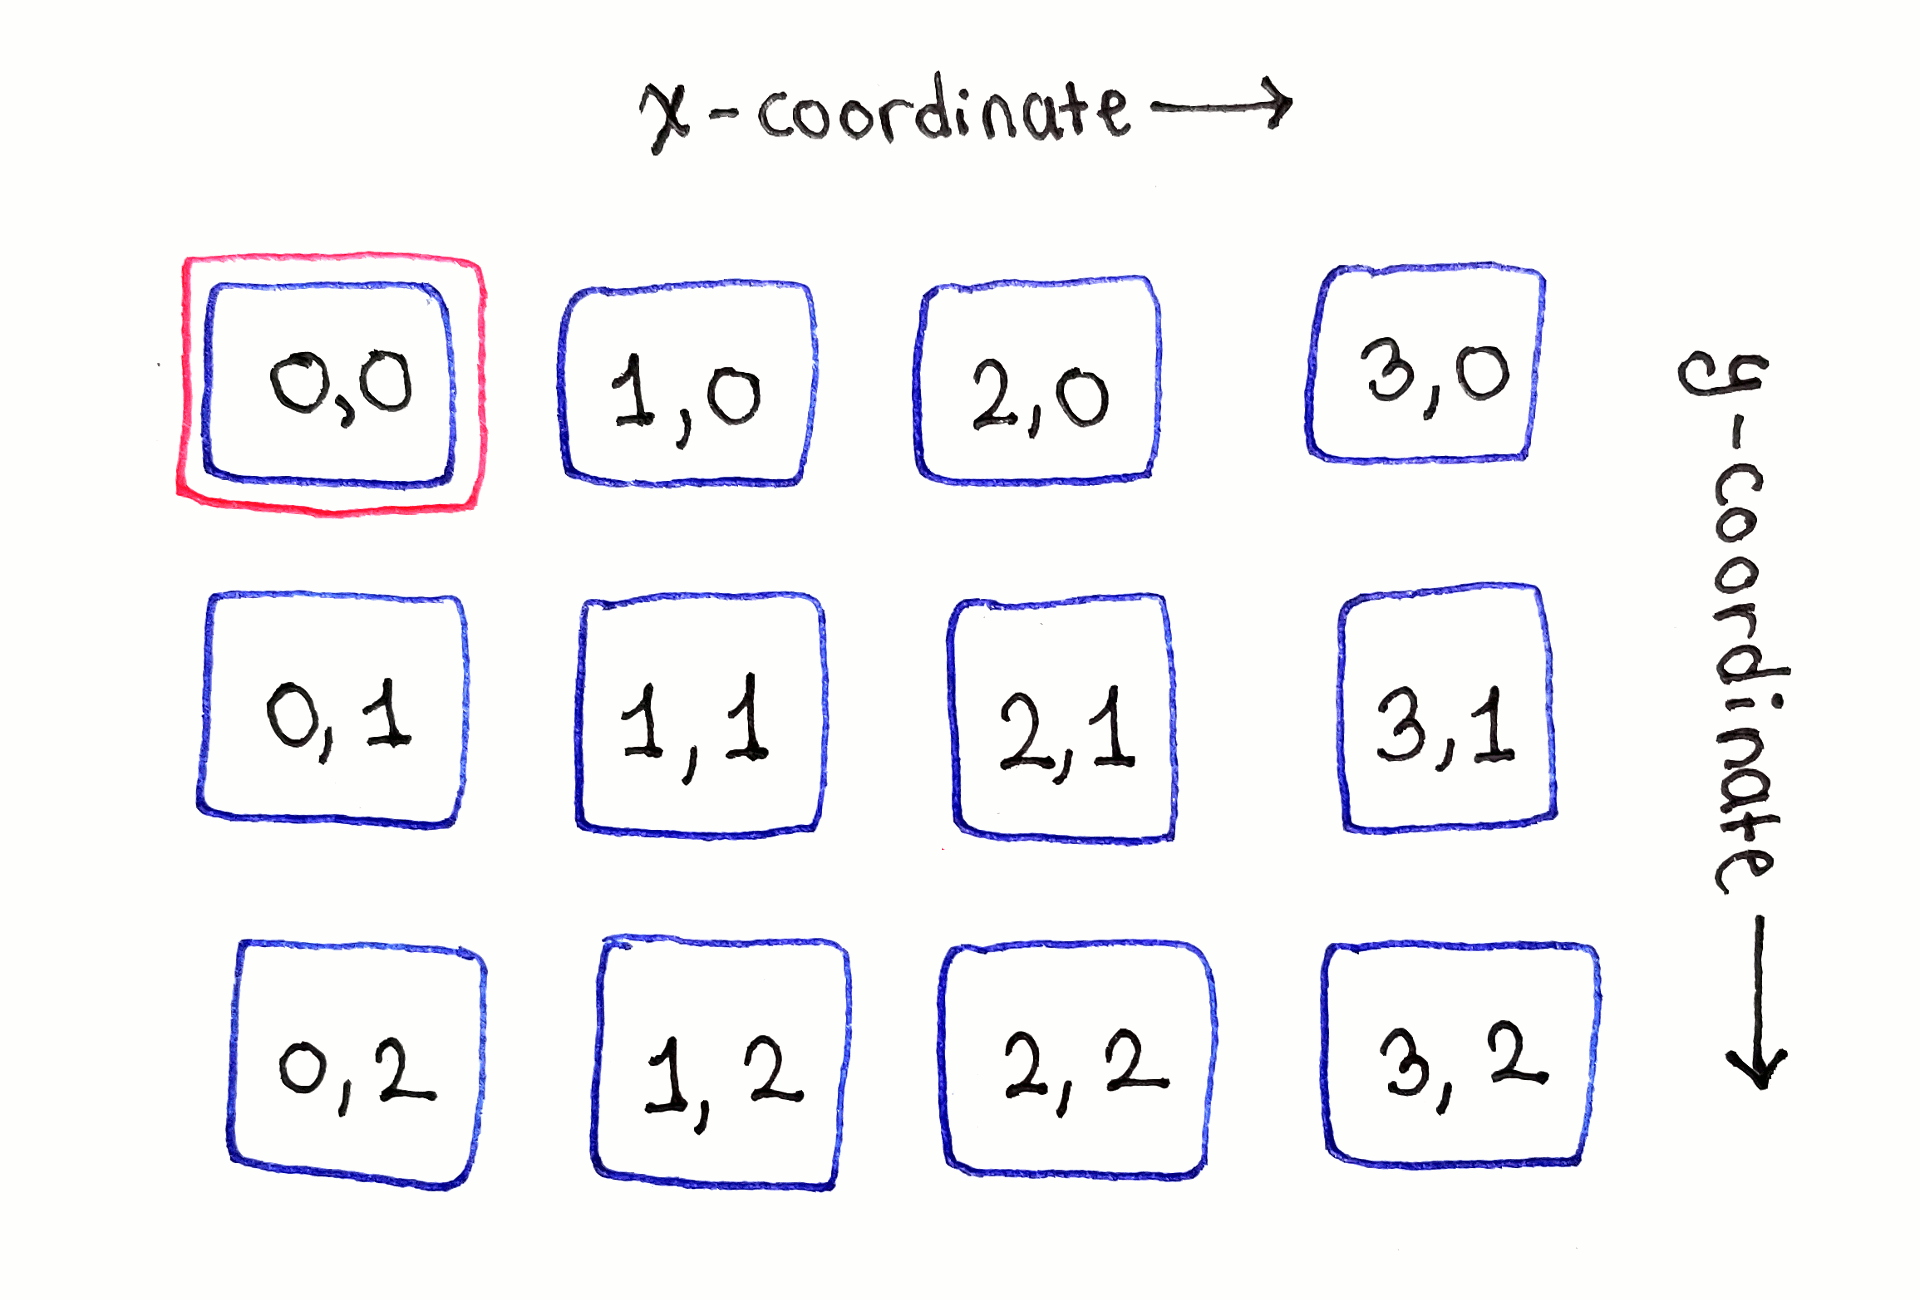 x-coordinate →
0,0 1,0 2,0 3,0
0,1 1,1 2,1 3,1
0,2 1,2 2,2 3,2
y-coordinate →